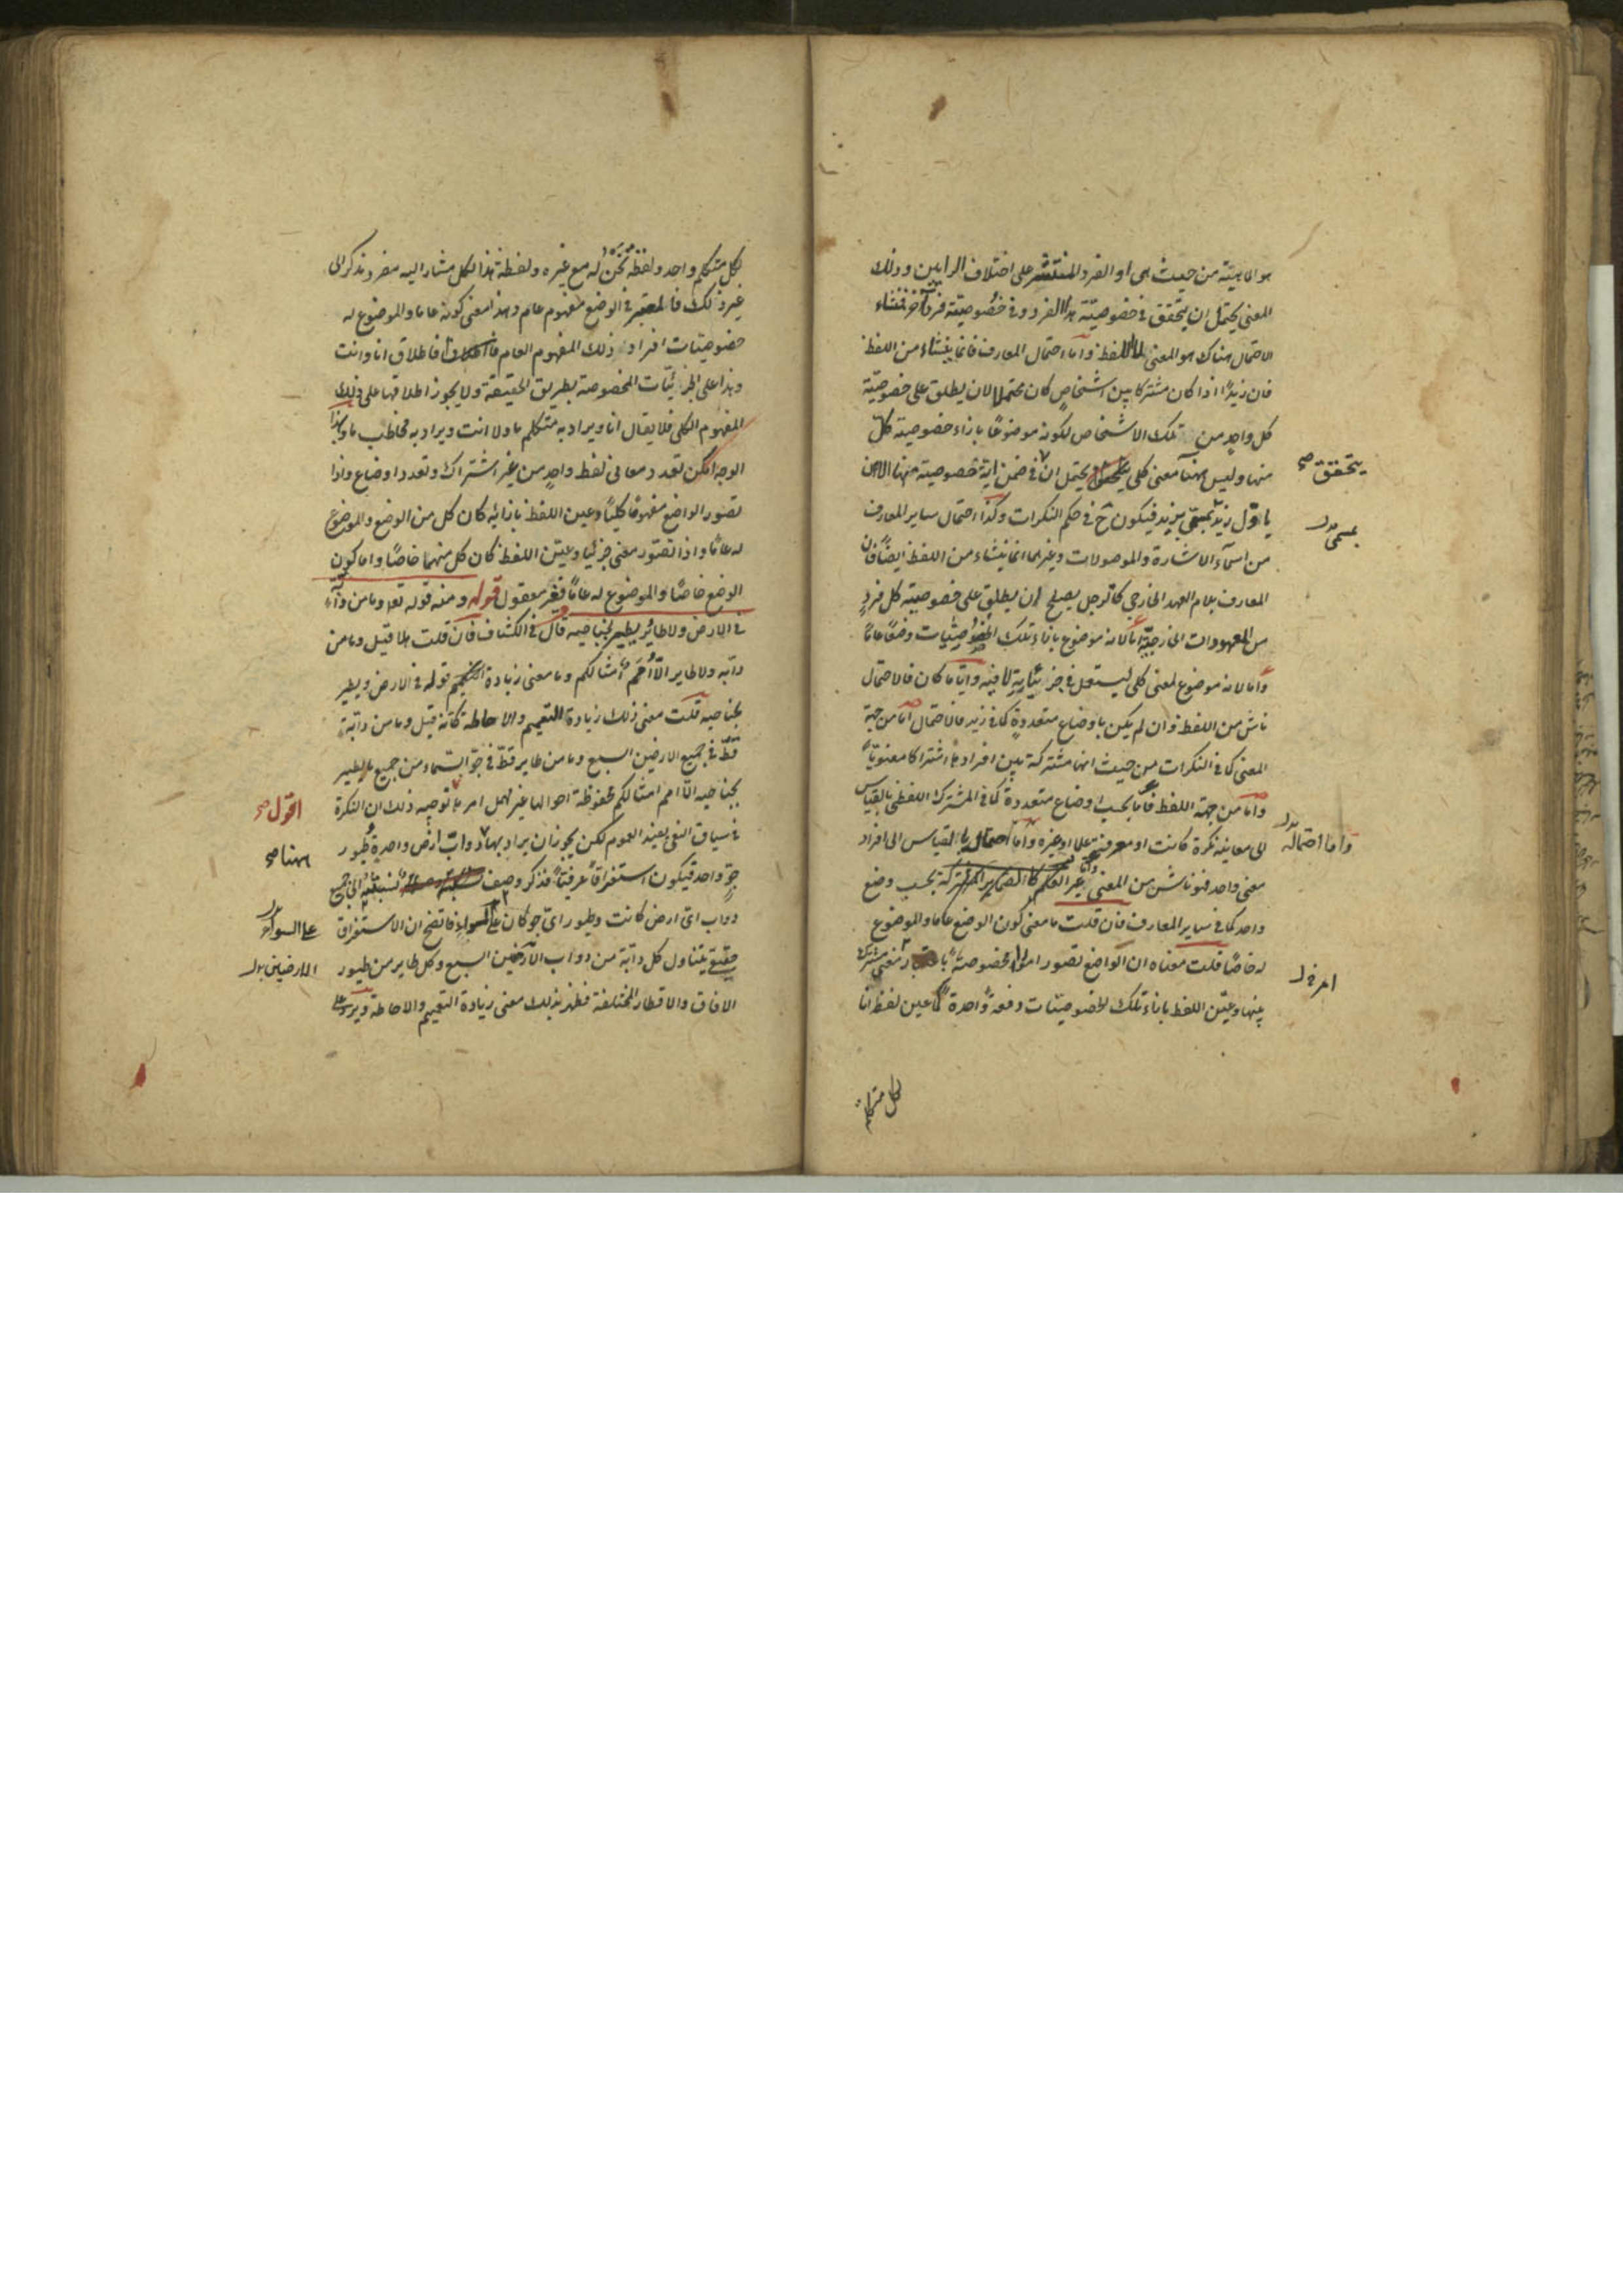 هو الماهية من حيث هي او الفرد المنتشر على اختلاف الرايين وذلك
المعنى يحتمل ان يتحقق في خصوصيّة هذا الفرد وفي خصوصيّة فرد آخر فمنشاء
الاحتمال هناك هو المعنى لا اللفظ وآما احتمال المعارف فانما ينشاء من اللفظ
فان زيدًا اذا كان مشتركا بين اشخاصٍ كان محتملا لان يطلق على خصوصيّة
كل واحدٍ من تلك الاشخاص لكونه موضوعًا بازاء خصوصية كل
منها وليس هنا معنى كلى يحتمل ان في ضمن اية خصوصية منها الا ان
ياوّل زيد بمسمى بزيد فيكون ح في حكم النكرات وكذا احتمال ساير المعارف
من اسمآء الاشارة والموصولات وغيرهما انما ينشاء من اللفظ ايضًا فان
المعارف بلام العهد الخارجي كالرجل يصلح ان يطلق على خصوصية كل فردٍ
من المعهودات الخارجيّة امّا لانه موضوع بازاء تلك الخصوصيّات وضعًا عامًا
وامّا لانه موضوع لمعنى كلى ليستعمل في جزئياته لا فيه وايّاما كان فالاحتمال
ناش من اللفظ وان لم يكن باوضاع متعددةٍ كما في زيد فالاحتمال امّا من جهة
المعنى كما في النكرات من حيث انها مشتركة بين افرادها اشتراكا معنويّا
وامّا من جهة اللفظ فامّا بحسب اوضاع متعددة كما في المشترك اللفظى بالقياس
الى معانيه نكرة كانت او معرفة علما او غيره وامّا احتماله بالقياس الى افراد
معنى واحد فهو ناش من المعنى
واحد كما في ساير المعارف فان قلت ما معنى كون الوضع عاما والموضوع
له خاصًا قلت معناه ان الواضع تصور امورا مخصوصة باعتبار معنى مشترك
بينها وعيّن اللفظ بازاء تلك الخصوصيّات دفعةً واحدة كما عين لفظ انا
يتحقق صح
بمسمى بدل
واما احتماله بدل
امر خ ل
لكل متكلم
لكل متكلم واحد ولفظة نحن له مع غيره ولفظة هذا لكل مشار اليه مفرد مذكر الى
غير ذلك فالمعتبر في الوضع مفهوم عام وهذا معنى كونه عاما والموضوع له
خصوصيّات افراد ذلك المفهوم العام فاطلاق انا وانت
وهذا على الجزئيّات المخصوصة بطريق الحقيقة ولا يجوز اطلاقها على ذلك
المفهوم الكلى فلا يقال انا ويراد به متكلم ما ولا انت ويراد به مخاطب ما وبهذا
الوجه امكن تعدد معانى لفظ واحدٍ من غير اشتراك وتعدد اوضاع واذا
تصور الواضع مفهومًا كليًا وعين اللفظ بازائه كان كل من الوضع والموضوع
له عامًا واذا تصوّر معنى جزئيا وعيّن اللفظ كان كل منهما خاصًا واما كون
الوضع خاصًا والموضوع له عامًا فغير معقول قوله ومنه قوله تع وما من دآبّة
في الارض ولا طائر يطير بجناحيه قال في الكشاف فان قلت هلا قيل وما من
دابّه ولا طاير الاّ اُمَمٌ امثالكم وما معنى زيادة قوله في الارض ويطير
بجناحيه قلت معنى ذلك زيادة التعميم والاحاطة كانّه قيل وما من دابّة
قطّ في جميع الارضين السبع وما من طاير قطّ في جوّ السّماء من جميع ما يطير
بجناحيه الاّ امم امثالكم محفوظة احوالها غير مهمل امرها توجيه ذلك ان النكرة
في سياق النفى يفيد العموم لكن يجوز ان يراد بها دوابّ ارض واحدة وطيور
جوّ واحد فيكون استغراقًا عرفيًا فذكر وصف نسبته الى جميع
دواب اىّ ارض كانت وطيور اىّ جو كان على السواء فاتضح ان الاستغراق
حقيقى يتناول كل دابّة من دواب الارضين السبع وكل طاير من طيور
الافاق والاقطار المختلفة فظهر بذلك معنى زيادة التعميم والاحاطة ويرد على
اقول صح
ههنا صح
على السواء بدل
الارضين بدل